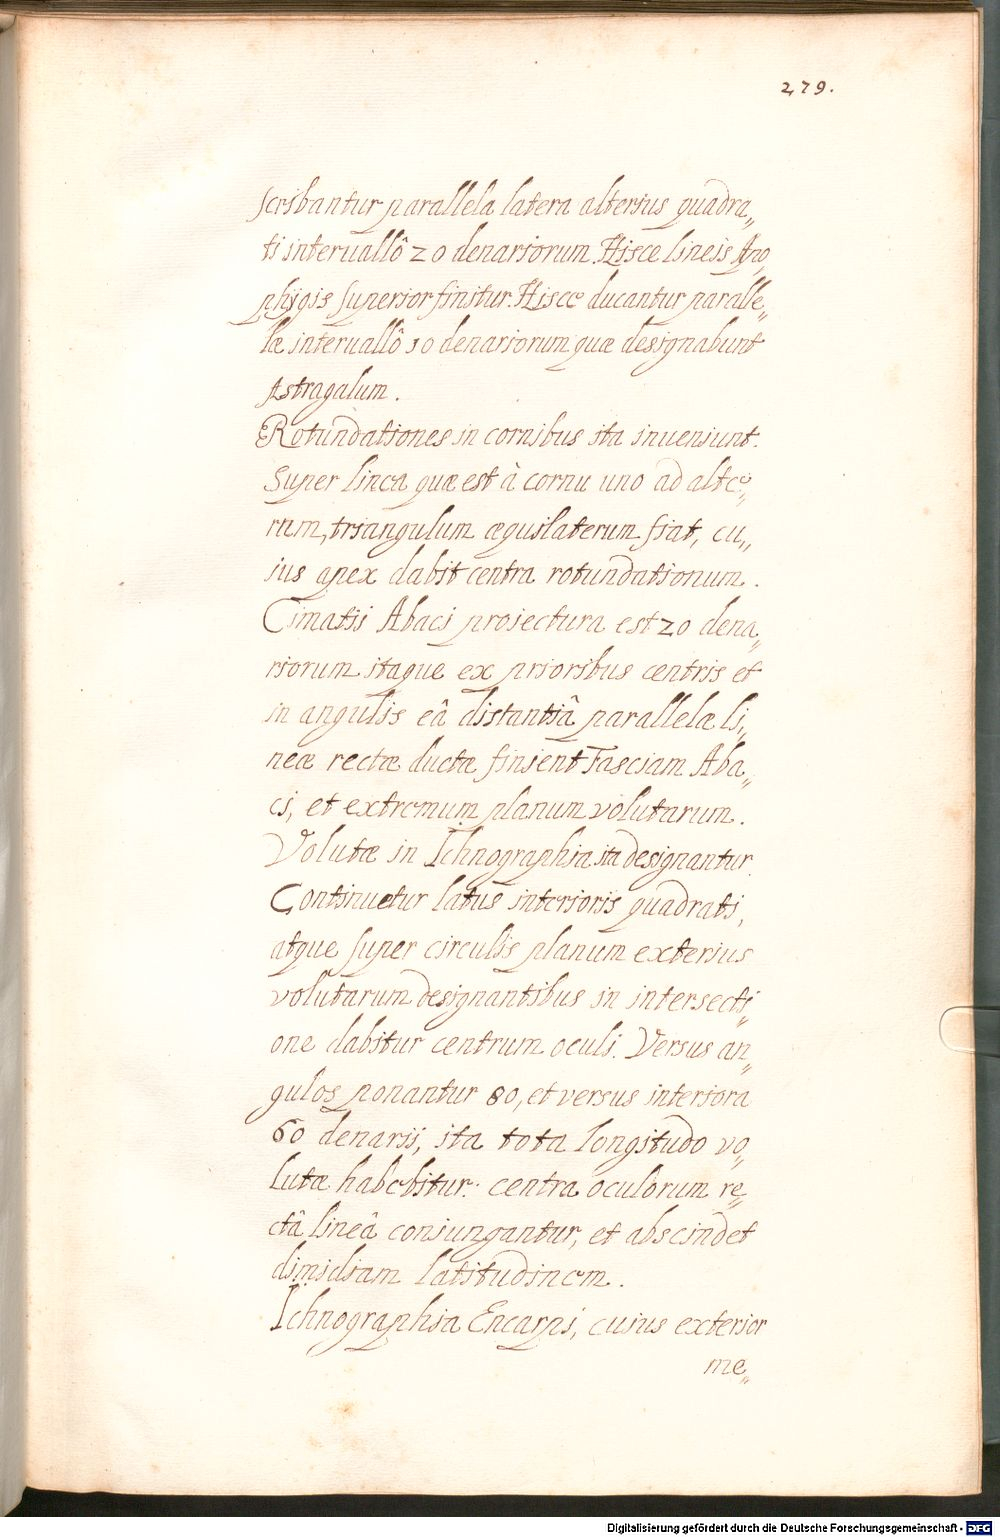 279.
scribantur parallela latera alterius quadra„
ti interuallô 20 denariorum. Hisce lineis Apo„
phijgis superior finitur. Hisce ducantur paralle„
læ interuallô 10 denariorum quæ designabunt
Astragalum.
Rotundationes in cornibus ita inueniunt.
Super linea quæ est à cornu uno ad alte„
rum, triangulum æquilaterum fiat, cu„
ius apex dabit centra rotundationum.
Cimatii Abaci proiectura est 20 dena„
riorum itaque ex prioribus centris et
in angulis eâ distantiâ parallelæ li„
neæ rectæ ductæ finient Fasciam Aba„
ci, et extremum planum volutarum.
Volutæ in Ichnographia ita designantur.
Continuetur latus interioris quadrati,
atque super circulis planum exterius
volutarum designantibus in intersecti„
one dabitur centrum oculi. Versus an„
gulos ponantur 80, et versus interiora
60 denarii, ita tota longitudo vo„
lutæ habebitur: centra oculorum re„
ctâ lineâ coniungantur, et abscindet
dimidiam latitudinem.
Ichnographia Encarpi, cuius exterior
me„
Digitalisierung gefördert durch die Deutsche Forschungsgemeinschaft - DFG